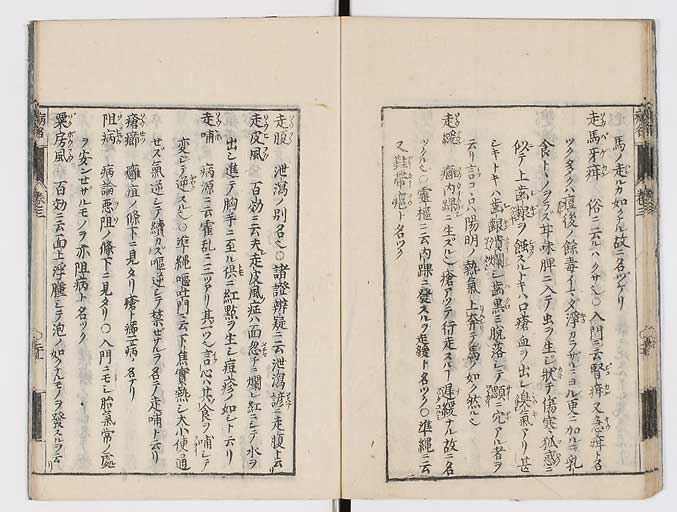 馬ノ走ルカ如クナル故ニ名ツケリ
走馬牙疳 俗ニ云ルハクサ也○入門ニ云腎疳又急疳ト名
ツク多クハ痘後ノ餘毒イマタ淨カラサルニヨル更ニ加ルニ乳
食トヽノハス甘味脾ニ入テ虫ヲ生シ狀チ傷寒狐惑ニ
似テ上齒齦ヲ蝕スルトキハ口瘡血ヲ出シ臭氣アリ甚
シキトキハ齒齦潰爛シ齒黒ミ脫落シテ顋ニ穴アル者ヲ
云リ言コヽロハ陽明ノ熱氣上奔テ馬ノ如ク然ル也
走緩 癰內踝ニ生スル也瘡アツテ行走スルニ遲緩ナル故ニ名
ツクル也○靈樞ニ云內踝ニ發スルヲ走緩ト名ツク○準繩ニ云
又鞋帶癰ト名ツク
走腹 泄瀉ノ別名也○諸證辨疑ニ云泄瀉諺ニ走腹ト云
走皮風 百効ニ云夫走皮風症ハ面忽チニ爛レ紅ニシテ水ヲ
出シ進テ胸手ニ至ル俱ニ紅點ヲ生シ痘疹ノ如シト云リ
走哺 病源ニ云霍亂ニ三ツアリ其一ツ也言心ハ其ノ食ヲ哺シテ
変シテ逆スル也○準繩嘔吐門ニ云下焦實熱シ大小便通
セス氣逆シテ續カス嘔逆シテ禁セサルヲ名テ走哺ト云リ
瘡癤 癰疽ノ條下ニ見タリ瘡ト癤ニ病ノ名ナリ
阻病 病論惡阻ノ條下ニ見タリ○入門ニモシ胎氣常ノ處
ヲ安ンセサルモノヲ亦阻病ト名ツク
粟房風 百効ニ云面上浮腫シテ泡ノ如クナルモノヲ發スルヲ云リ